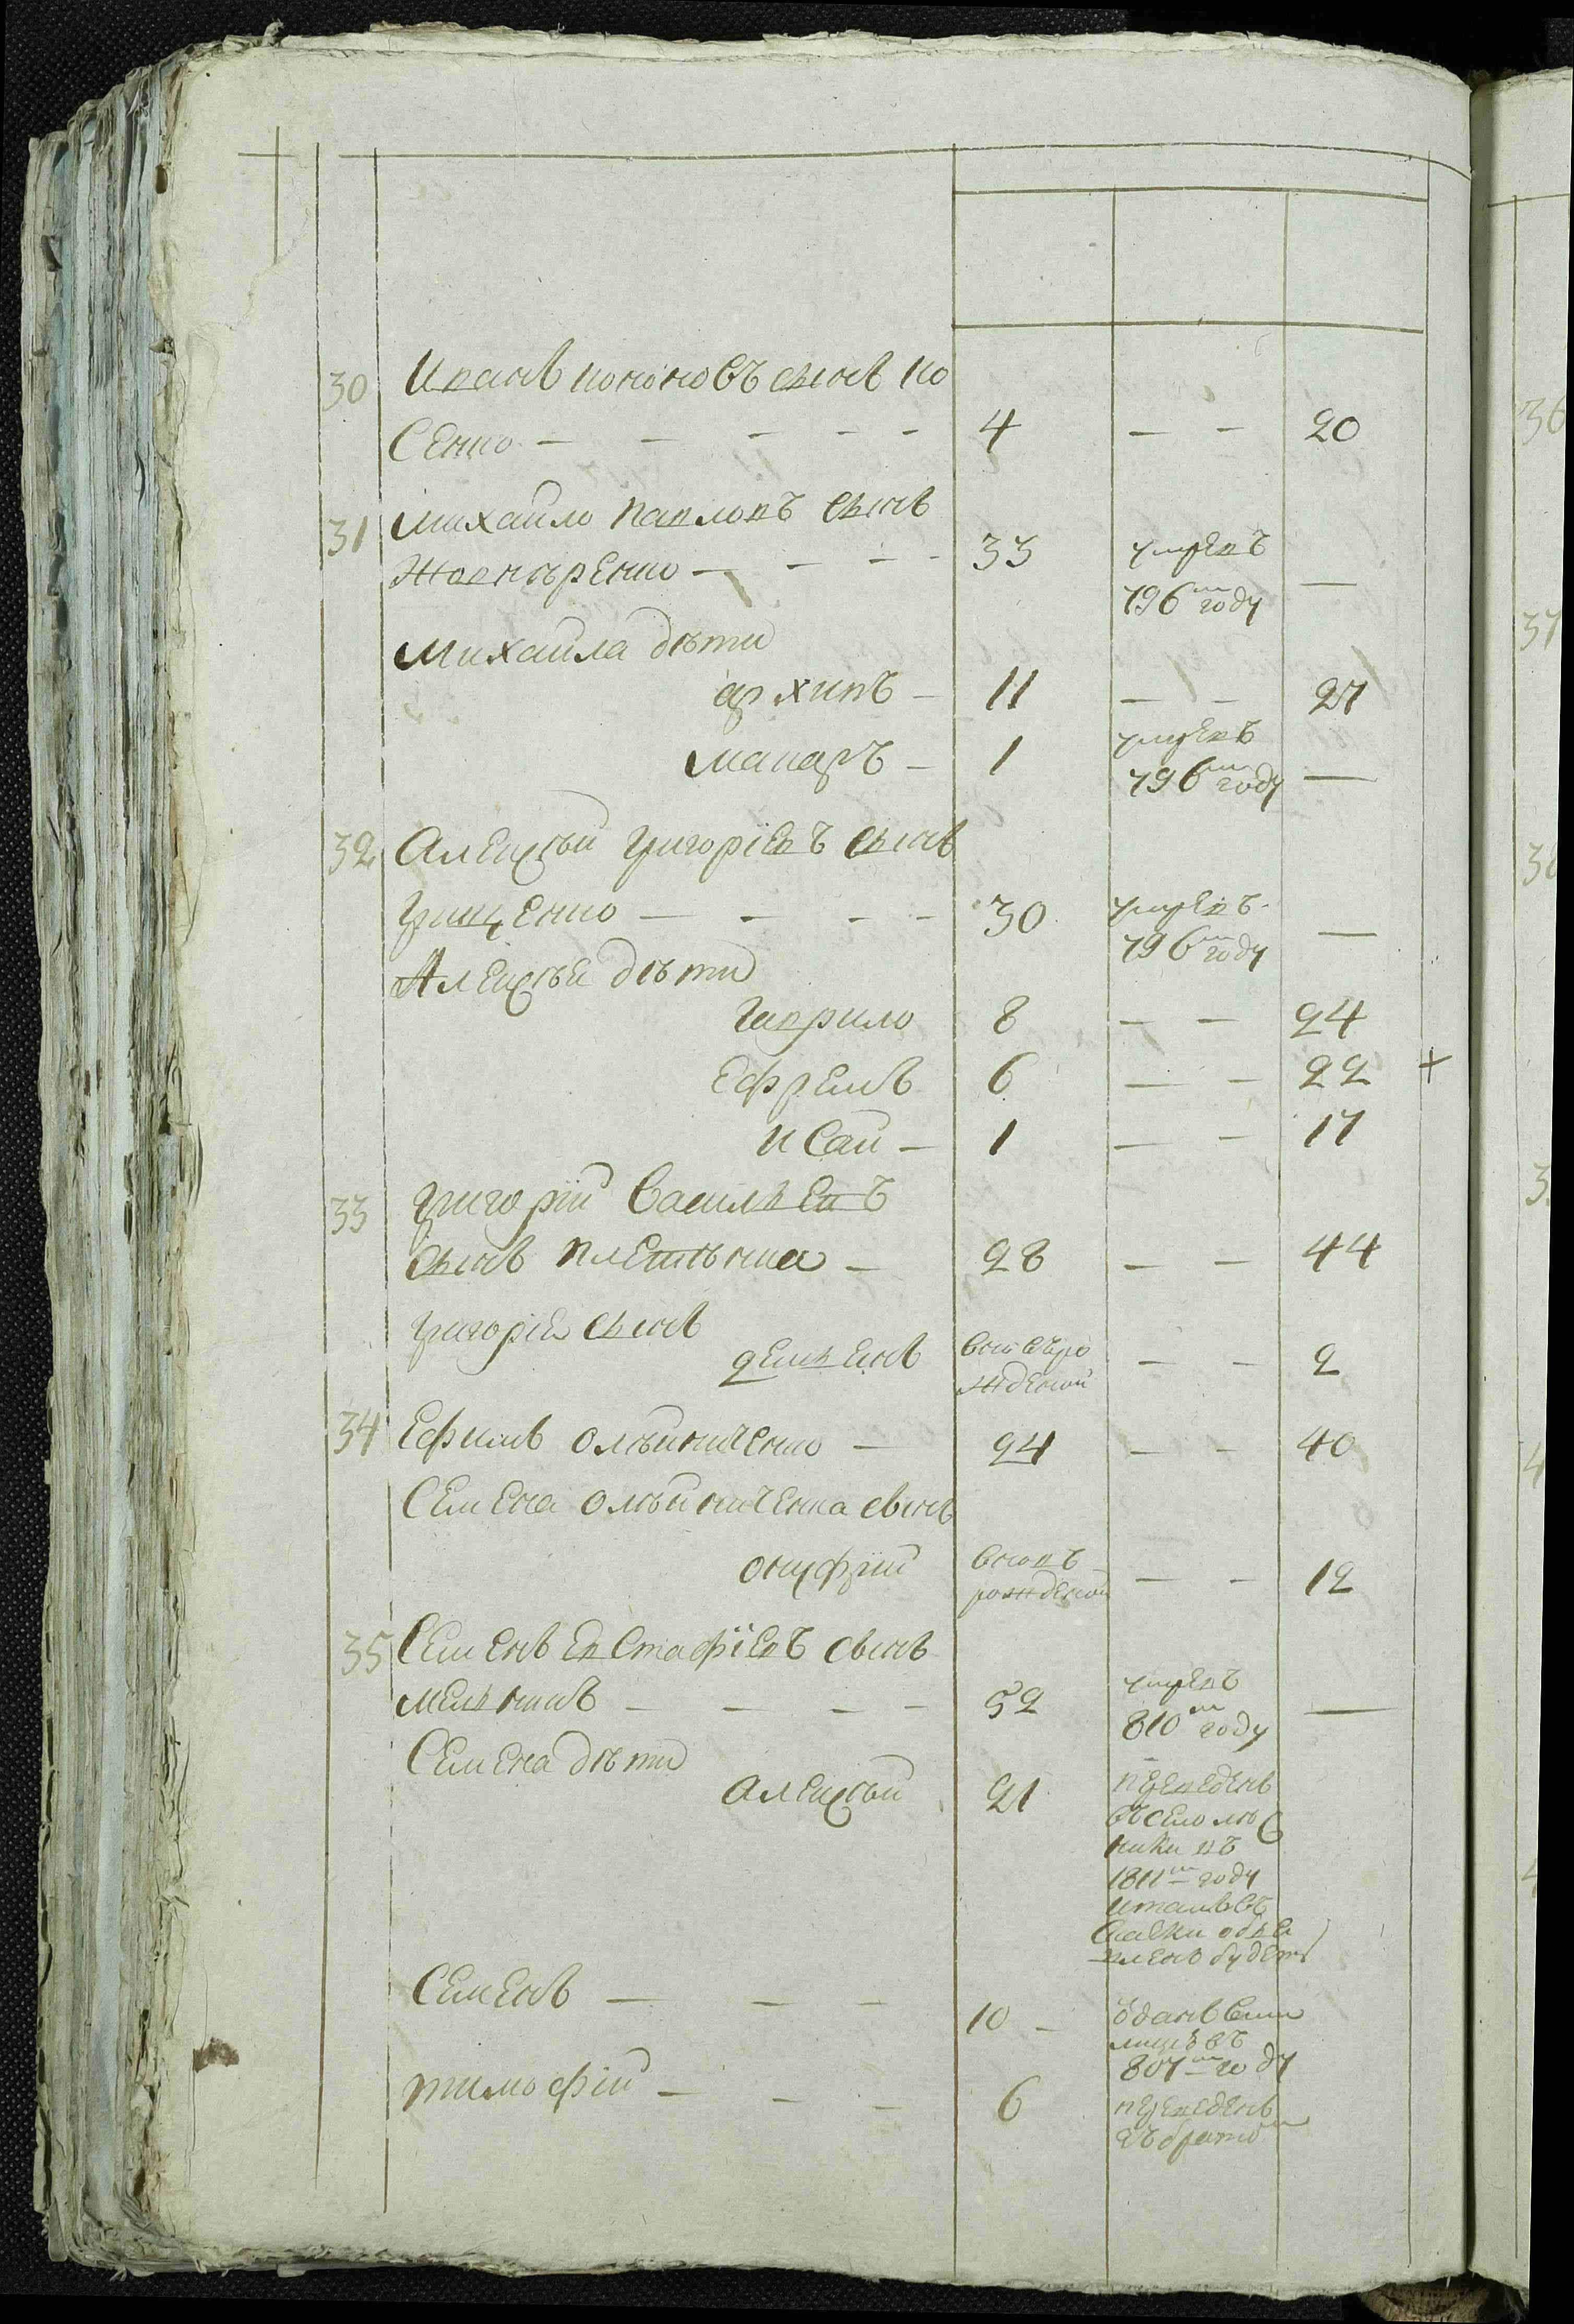 30 Иванъ кононовъ сынъ ко
сенко — — — — — 4 — — 20
31 Михайло павловъ сынъ
жовнѣренко — — — — 33 умревъ
796м году —
Михайла дѣти
архипъ — 11 — — 27
макаръ — 1 умревъ
796м году —
32 Алексѣй григоріевъ сынъ
грищенко — — — — 30 умревъ
796м году —
Алексѣя дѣти
гаврило 8 — — 24
ефремъ 6 — — 22 +
исай — 1 — — 17
33 григорій васильевъ
сынъ плетѣнка — 28 — — 44
григорія сынъ
демьянъ вновъ ро
жденой — — 2
34 ефимъ олѣйниченко — 24 — — 40
семена олѣйниченка сынъ
онуфрій вновъ
рожденой — — 12
35 семенъ евстафіевъ сынъ
мельникъ — — — — 52 умревъ
810м году —
семена дѣти
алексѣй 21 переведенъ
въ село
въ
1811м году
и тамъ въ
сказки объя
вленъ будетъ
семенъ — — — 10 — одданъ в
въ
807м году
тимофій — — — 6 переведенъ
зъ братом
36
37